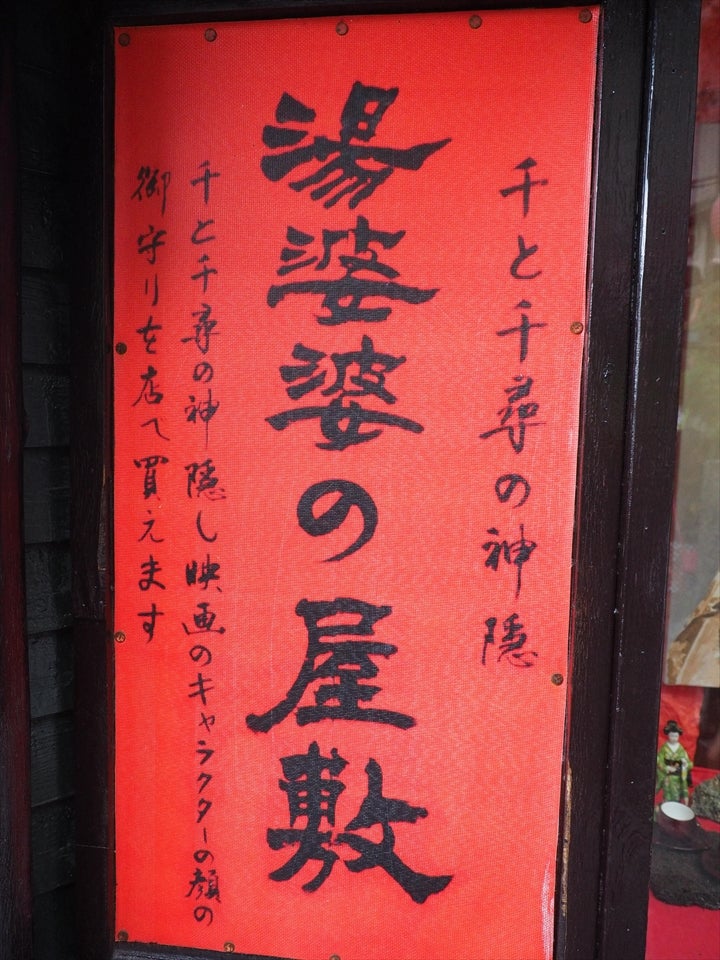 千と千尋の神隠
湯婆婆の屋敷
千と千尋の神隠し映画のキャラクターの顔の
御守りを店で買えます